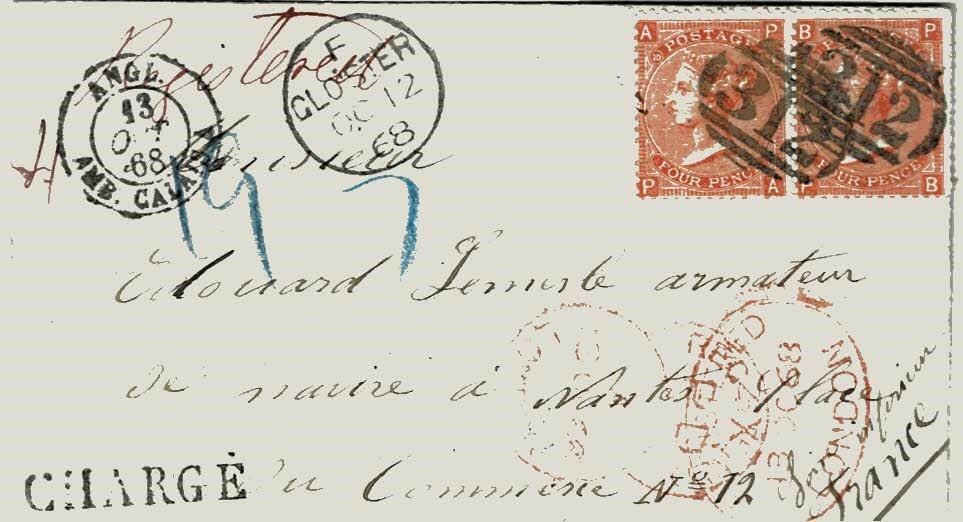 Registered
ANGL.
13
OCT
68
AMB. CALAIS A
F
GLOSTER
OC 12
68
A P
POSTAGE
10
FOUR PENCE
P A
B P
POSTAGE
FOUR PENCE
P B
312
312
4
197
Monsieur
Édouard armateur
de navire à Nantes Place
du Commerce No 12
inférieure
France
CHARGÉ
REGISTERED
LONDON
13 OC 68